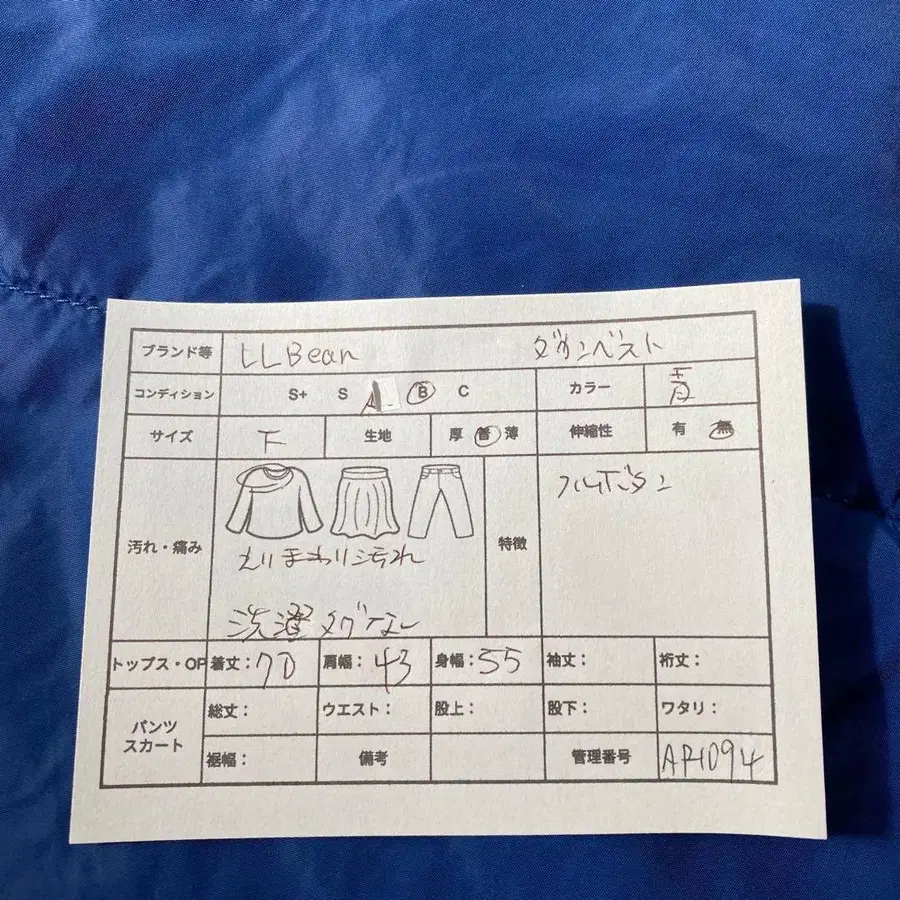 ブランド等 LLBean ダウンベスト
コンディション S+ S A B C カラー 青
サイズ 下 生地 厚 普 薄 伸縮性 有 無
汚れ・痛み えりまわり汚れ 特徴 フルボタン
洗濯タグなし
トップス・OP 着丈:70 肩幅:43 身幅:55 袖丈: 裄丈:
パンツ スカート 総丈: ウエスト: 股上: 股下: ワタリ:
裾幅: 備考 管理番号